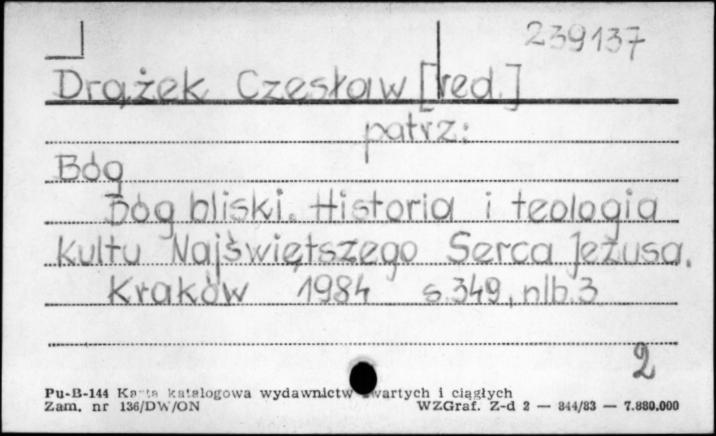 239137
Drążek Czesław [red.]
patrz:
Bóg
Bóg bliski. Historia i teologia
kultu Najświętszego Serca Jezusa.
Kraków 1984 s. 349, nlb. 3
2
Pu-B-144 Karta katalogowa wydawnictw zwartych i ciągłych
Zam. nr 136/DW/ON WZGraf. Z-d 2 — 344/83 — 7.880.000